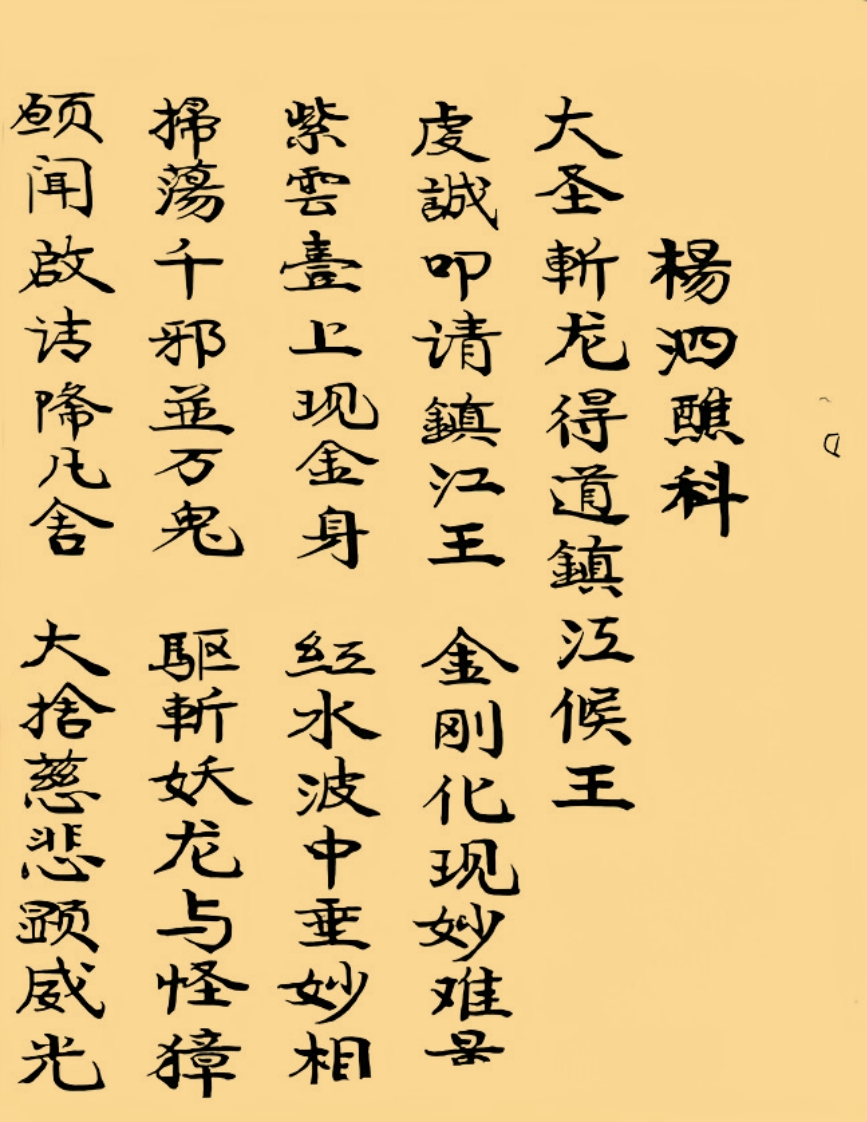 楊泗醮科
大圣斬龙得道鎮江候王
虔誠叩请鎮江王 金刚化现妙难量
紫雲臺上现金身 红水波中垂妙相
掃蕩千邪並万鬼 驱斬妖龙与怪獐
願闻啟请降凡舍 大捨慈悲顕威光